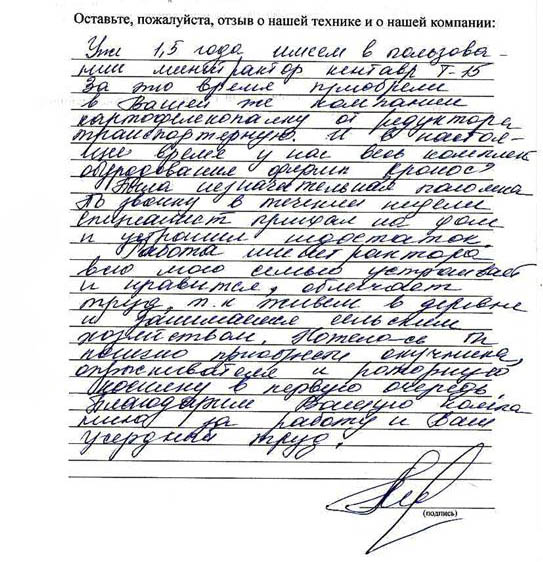 Оставьте, пожалуйста, отзыв о нашей технике и о нашей компании:
Уже 1,5 года имеем в пользова-
нии минитрактор кентавр Т-15
За это время приобрели
в Вашей же компании
картофелекопалку от редуктора
транспортерную. И в настоя-
щее время у нас весь комплект
оборудования фирмы кронос
Была незначительная поломка
По звонку в течении недели
специалист приехал на дом
и устранил недостаток.
Работа минитрактора
всю мою семью устраивает
и нравится, облегчает
труд, т.к живем в деревне
и занимаемся сельским
хозяйством. Хотелось бы
приобрести окучника,
опрыскивателя и роторную
косилку в первую очередь,
Благодарим Вашую компа
нию за работу и Ваш
усердный труд.
(подпись)